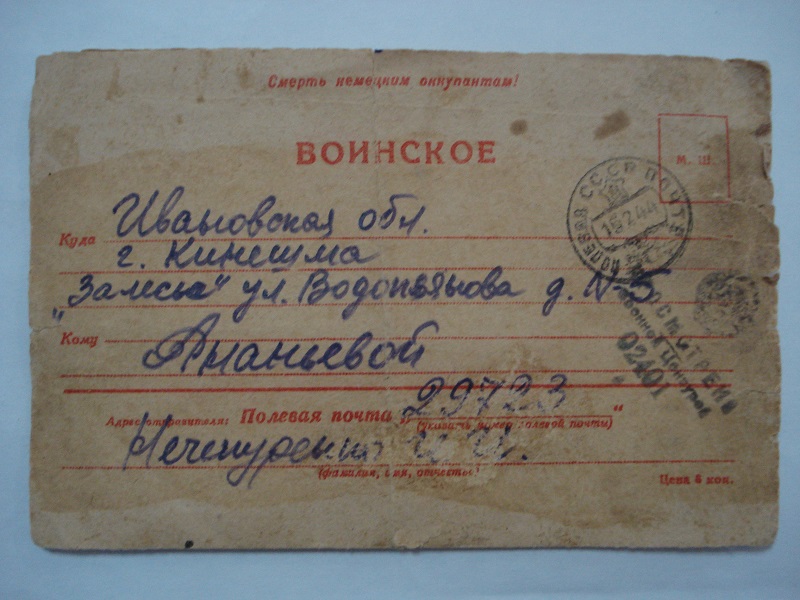 Смерть немецким оккупантам!
ВОИНСКОЕ
М. Ш.
ПОЛЕВАЯ СССР ПОЧТА
16 2 44
Куда Ивановская обл.
г. Кинешма
ул. Водопьянова д. № 5
Кому Ананьевой
ПРОСМОТРЕНО
Военной Цензурой
02401
Адрес отправителя: Полевая почта „29723“
(указать номер полевой почты)
Нечипуренко И. И.
(фамилия, имя, отчество)
Цена 5 коп.